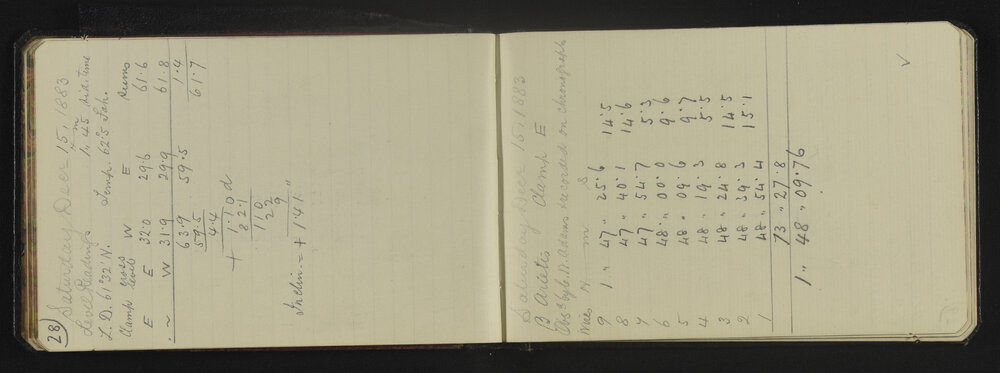 28)
Saturday Decer 15, 1883
Level Readings 1h 45m Sid. time
L. D. 61°32' N. Temp. 62°.5 Fah.
Clamp Cross level W E Sums
E E 32.0 29.6 61.6
~ W 31.9 29.9 61.8
63.9 59.5 1.4
59.5 61.7
4.4
+ 1.10 d
82.1
110
22
9
Inclin. = + 1.41 "
Saturday Decer 15, 1883
B Arietis Clamp E
Obsd by C. W. Adams & recorded on chronograph
Wires H m s
9 1 " 47 " 25.6 14.5
8 47 " 40.1 14.6
7 47 " 54.7 5.3
6 48 " 00.0 9.6
5 48 " 09.6 9.7
4 48 " 19.3 5.5
3 48 " 24.8 14.5
2 48 " 39.3 15.1
1 48 " 54.4
73 " 27.8
1 " 48 " 09.76
√